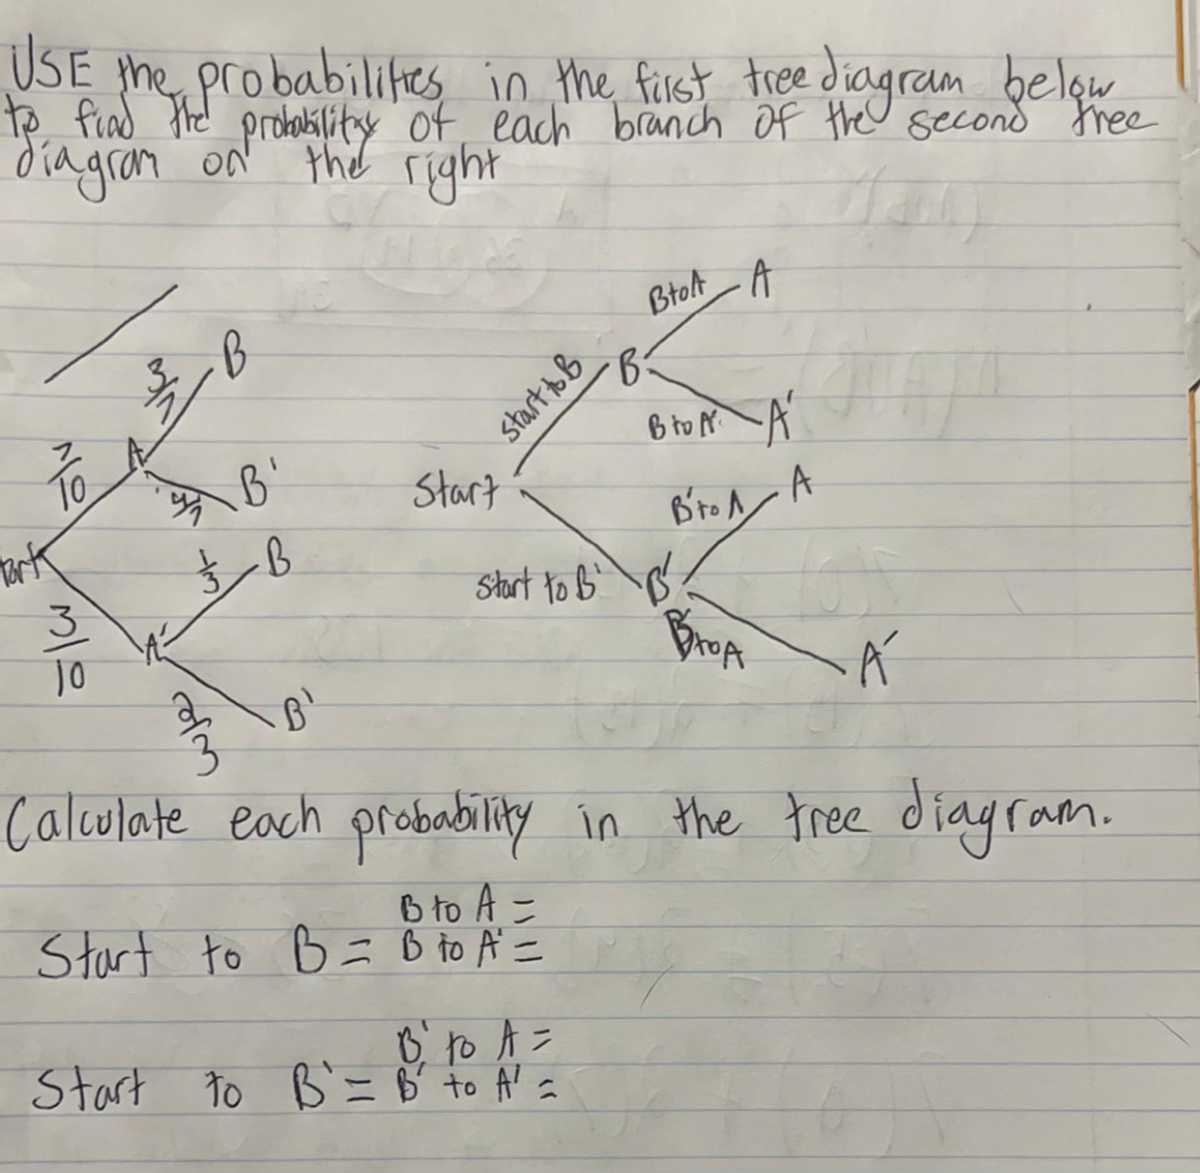 USE the probabilities in the first tree diagram below
to find the probability of each branch of the second tree
diagram on the right
B to A A
3/7 B
Start to B B
7/10 A
B to A' A'
4/7 B'
Start
B' to A A
1/3 B
tart
Start to B' B'
3/10 A'
B' to A A'
2/3 B'
Calculate each probability in the tree diagram.
B to A =
Start to B = B to A' =
B' to A =
Start to B' = B' to A' =